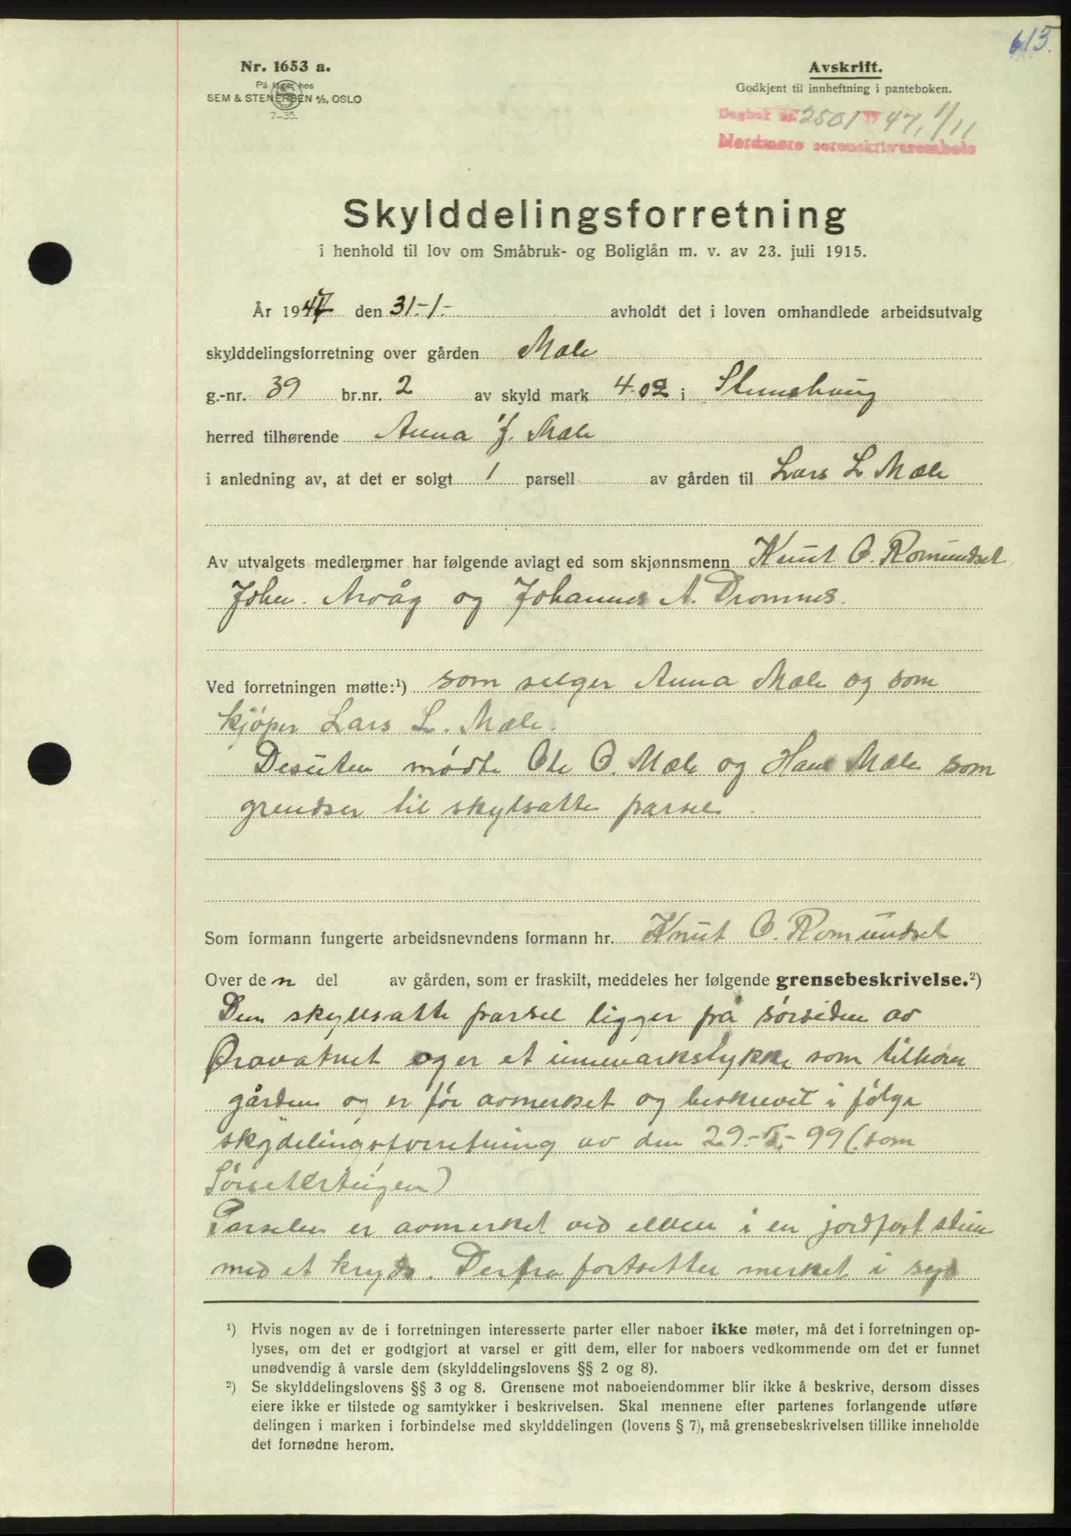 613.
Nr. 1653 a.
På lager hos
SEM & STENERSEN A/S, OSLO
7–35.
Avskrift.
Godkjent til innheftning i panteboken.
Dagbok nr. 2501 19 47, 1/11
Nordmøre sorenskriverembete
Skylddelingsforretning
i henhold til lov om Småbruk- og Boliglån m. v. av 23. juli 1915.
År 1947 den 31.-1.- avholdt det i loven omhandlede arbeidsutvalg
skylddelingsforretning over gården Mæle
g.-nr. 39 br.nr. 2 av skyld mark 4.02 i Stemshaug
herred tilhørende Anna J. Mæle
i anledning av, at det er solgt 1 parsell av gården til Lars L. Mæle
Av utvalgets medlemmer har følgende avlagt ed som skjønnsmenn Knut O. Romundset
John Arvåg og Johannes A. Dromnes.
Ved forretningen møtte:¹) som selger Anna Mæle og som
kjøper Lars L. Mæle.
Desuten mødte Ole O. Mæle og Hans Mæle som
grendser til skylsatte parsel.
Som formann fungerte arbeidsnevndens formann hr. Knut O. Romundset
Over den del av gården, som er fraskilt, meddeles her følgende grensebeskrivelse.²)
Den skyllsatte parsel ligger på sørsiden av
Øravatnet og er et innmarkstykke som tilhører
gården og er før avmerket og beskrevet i følge
skydelingsforretning av den 29.- - 99 (som
Sørsetersteigen)
Parselen er avmerket ved elven i en jordfast stein
med et kryds. Derfra fortsetter merket i syd
¹) Hvis nogen av de i forretningen interesserte parter eller naboer ikke møter, må det i forretningen op-
lyses, om det er godtgjort at varsel er gitt dem, eller for naboers vedkommende om det er funnet
unødvendig å varsle dem (skylddelingslovens §§ 2 og 8).
²) Se skylddelingslovens §§ 3 og 8. Grensene mot naboeiendommer blir ikke å beskrive, dersom disses
eiere ikke er tilstede og samtykker i beskrivelsen. Skal mennene efter partenes forlangende utføre
delingen i marken i forbindelse med skylddelingen (lovens § 7), må grensebeskrivelsen tillike inneholde
det fornødne herom.